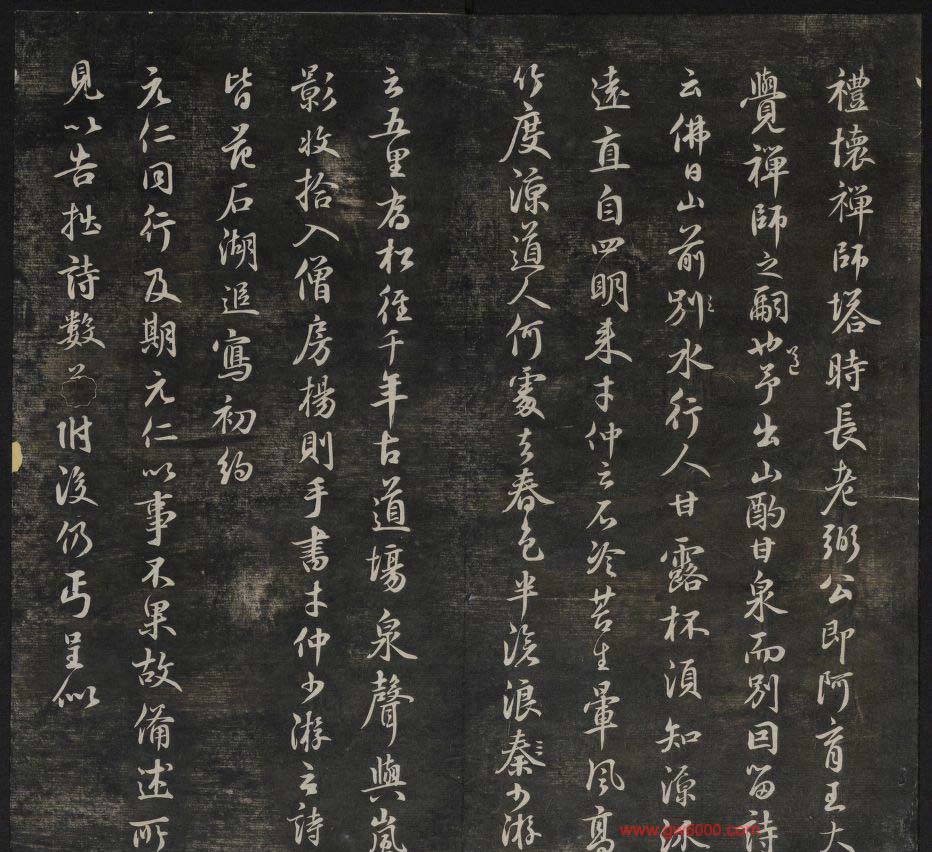 禮懷禪師塔時長老弼公即阿育王大
覺禪師之嗣也予出山酌甘泉而別因留詩
云佛日山前別水行人甘露杯須知源派
遠直自四明来才仲云石冷苔生暈風高
竹度涼道人何處去春色半滄浪秦少游
云五里喬松径千年古道場泉聲與嵐
影收拾入僧房楊則手書才仲少游云詩
皆苑石湖追寫初約
元仁同行及期元仁以事不果故備述所
見以告拙詩數附後仍丐呈似
www.gw6000.com